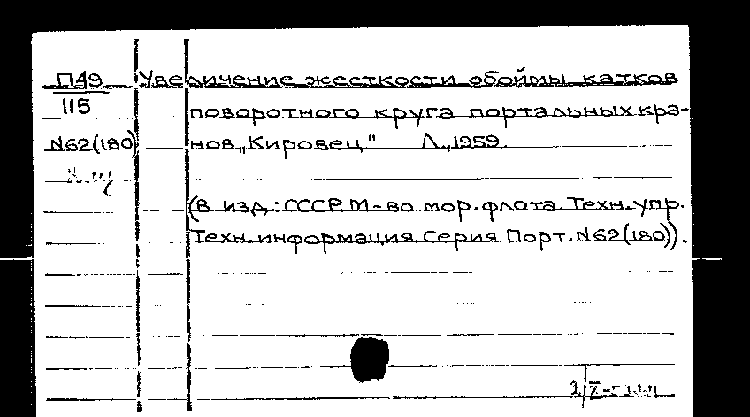 П49 Увеличение жесткости обоймы катков
115 поворотного круга портальных кра-
N62(180) нов „Кировец" Л., 1959.
(В изд.: СССР. М-во мор. флота. Техн. упр.
Техн. информация. Серия Порт. N62(180)).